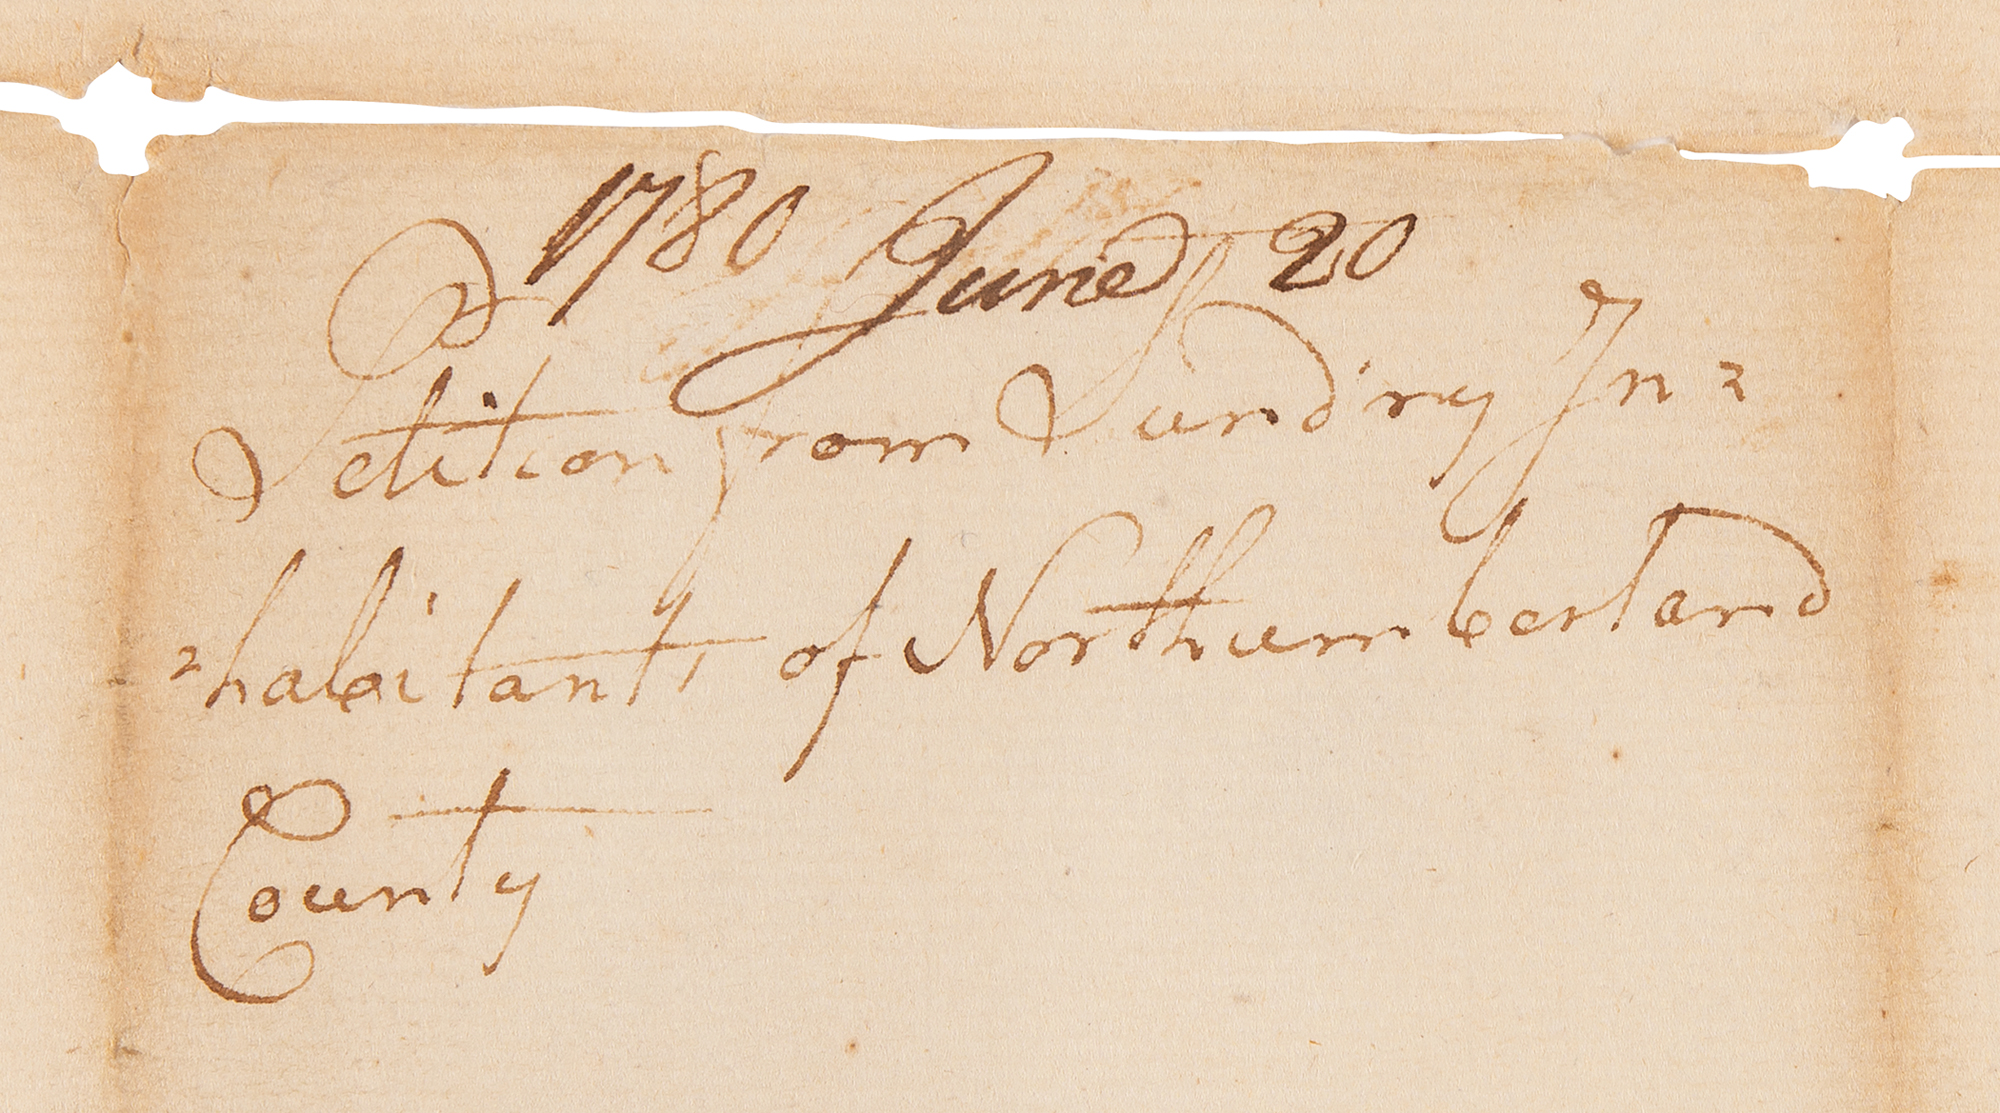 1780 June 20
Petition from Sundry In=
=habitants of Northumberland
County